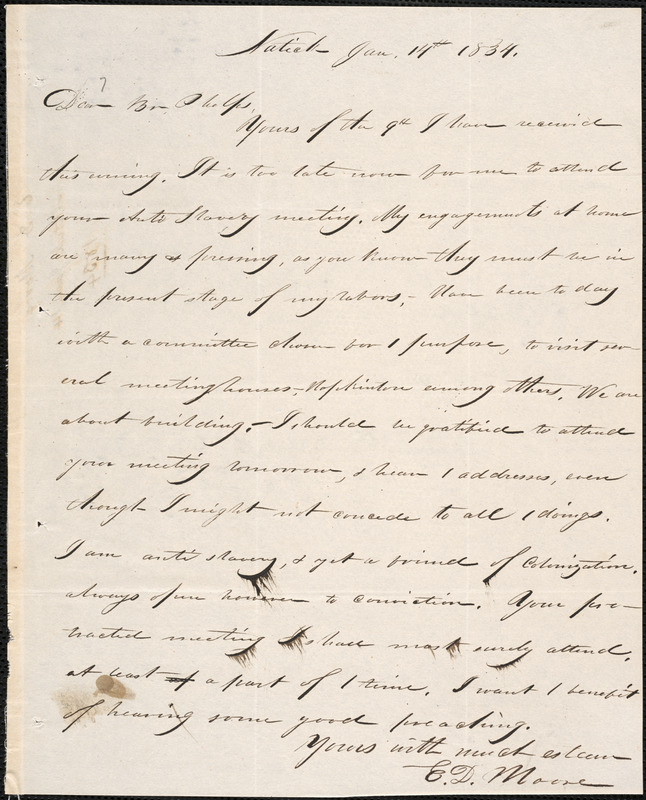 Natick Jan. 14th 1834.
Dear Br. Phelps,
Yours of the 9th I have received
this evening. It is too late now for me to attend
your Anti Slavery meeting. My engagements at home
are many & pressing, as you know they must be in
the present stage of my labors,- Have been to day
with a committee chosen for 1 purpose, to visit sev
eral meetinghouses,- Hopkinton among others. We are
about building.- I should be gratified to attend
your meeting tomorrow, & hear 1 addresses, even
though I might not concede to all 1 doings.
I am anti slavery, & yet a friend of Colonization.
always open however to conviction. Your pro-
tracted meeting I shall most surely attend,
at least a part of 1 time. I want 1 benefit
of hearing some good preaching.
Yours with much esteem
E. D. Moore